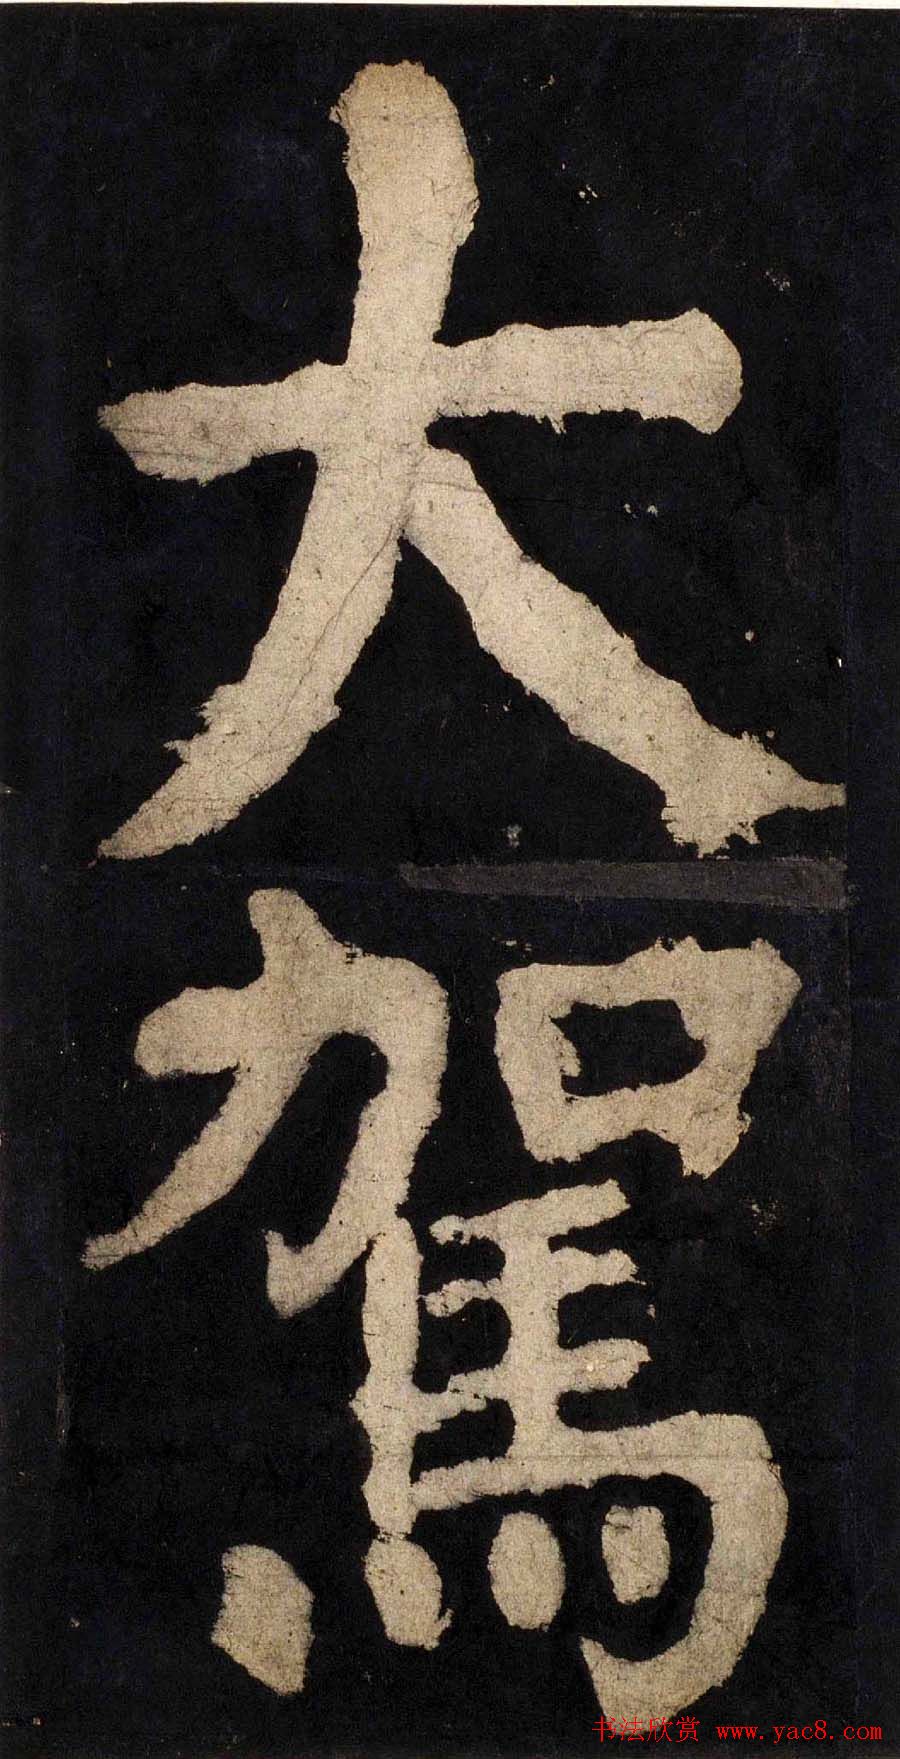 大
駕
书法欣赏 www.yac8.com